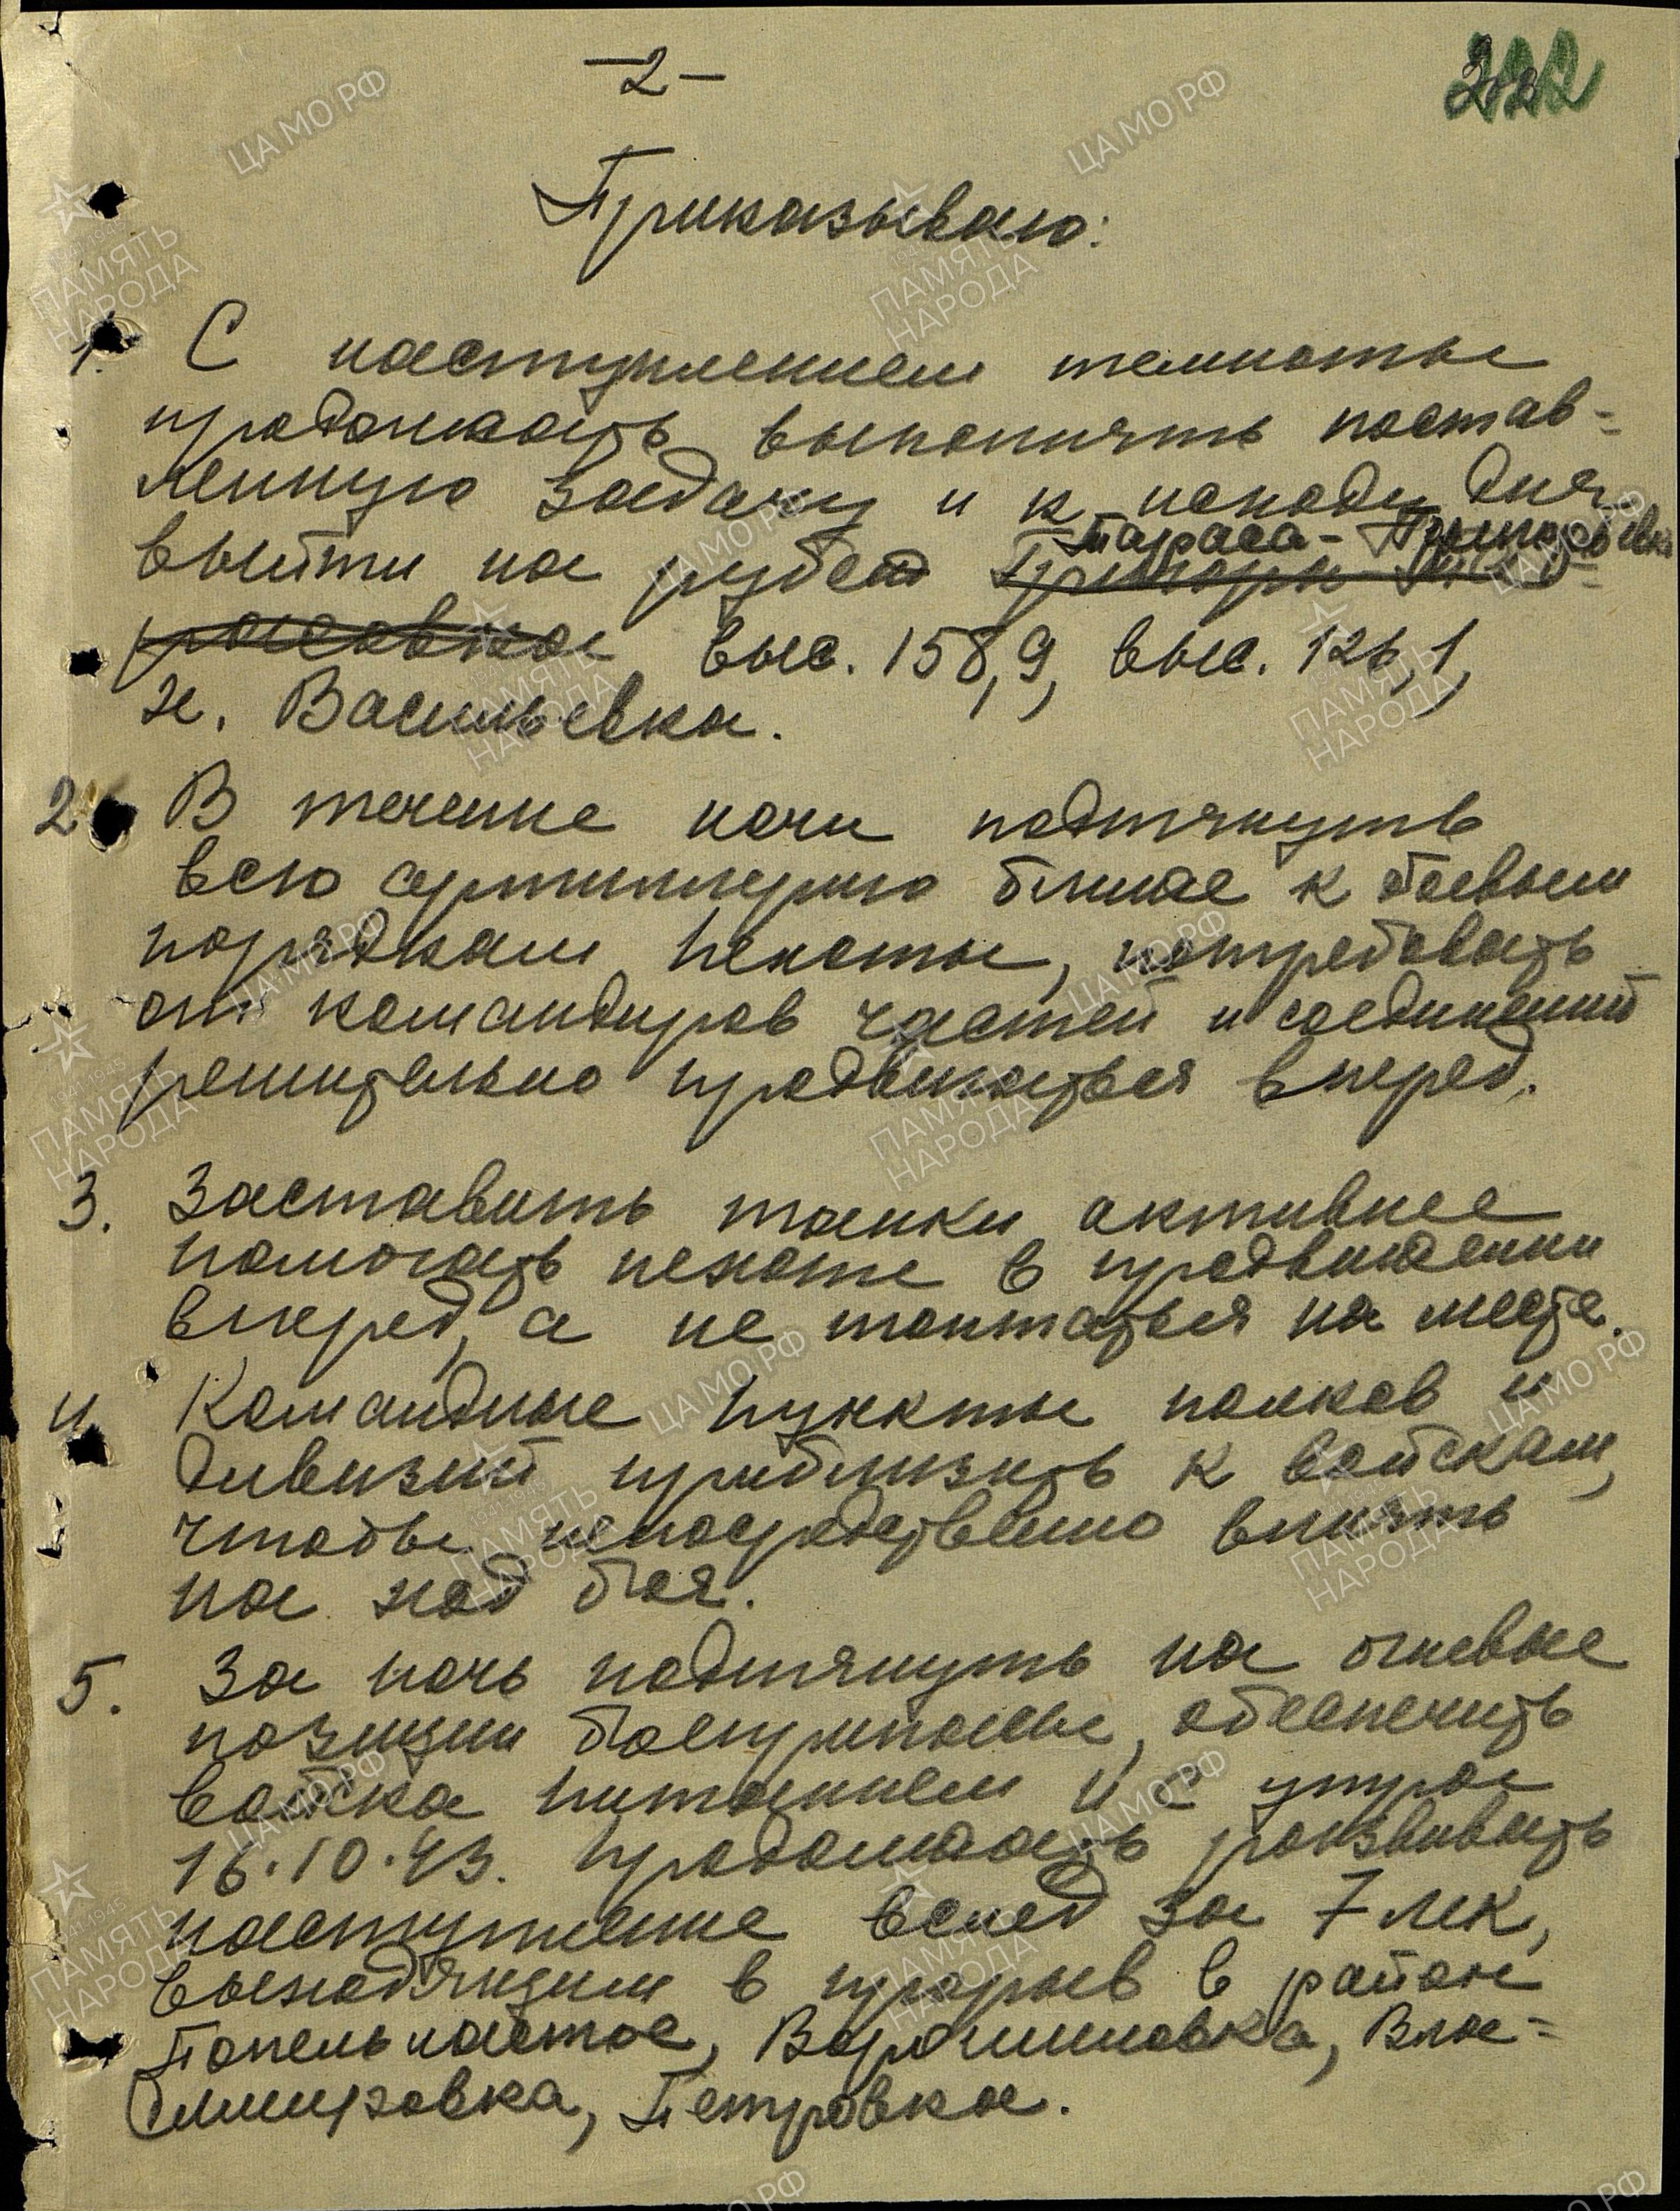 -2-
222
Приказываю:
1. С наступлением темноты
продолжать выполнять постав=
ленную задачу и к исходу дня
Тараса-Григорьевка
выйти на рубеж
выс. 158,9, выс. 126,1,
х. Васильевка.
2. В течение ночи подтянуть
всю артиллерию ближе к боевым
порядкам пехоты, потребовать
от командиров частей и соединений
решительно продвигаться вперед.
3. Заставить танки активнее
помогать пехоте в продвижении
вперед, а не топтаться на месте.
4. Командные пункты полков и
дивизий приблизить к войскам,
чтобы непосредственно влиять
на ход боя.
5. За ночь подтянуть на огневые
позиции боеприпасы, обеспечить
войска питанием и с утра
16.10.43. продолжать развивать
наступление вслед за 7 мк,
выходящим в прорыв в район
Попельнастое, Ворошиловка, Вла=
димировка, Петровка.
ЦА МО РФ
ПАМЯТЬ
НАРОДА
1941-1945